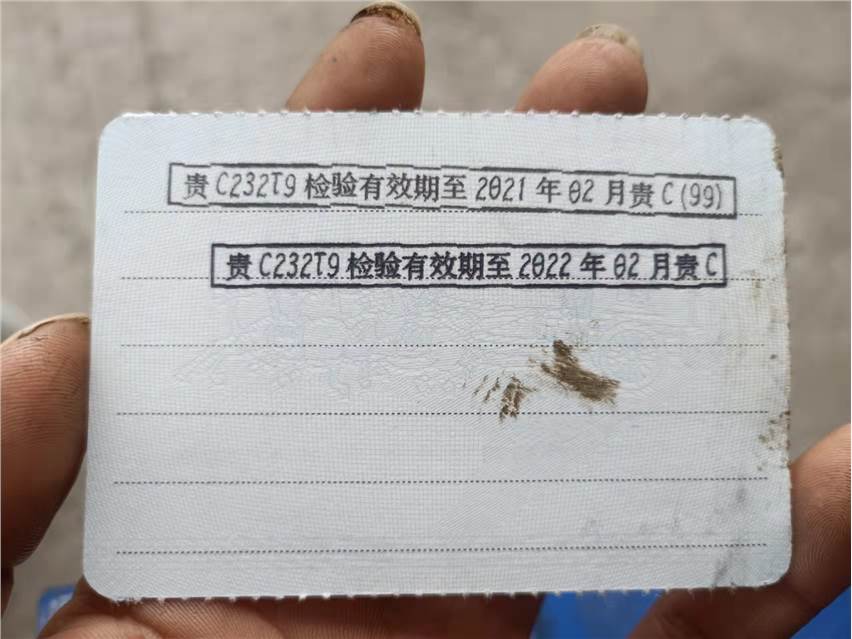 贵 C232T9 检验有效期至 2021 年 02 月贵 C (99)
贵 C232T9 检验有效期至 2022 年 02 月贵 C